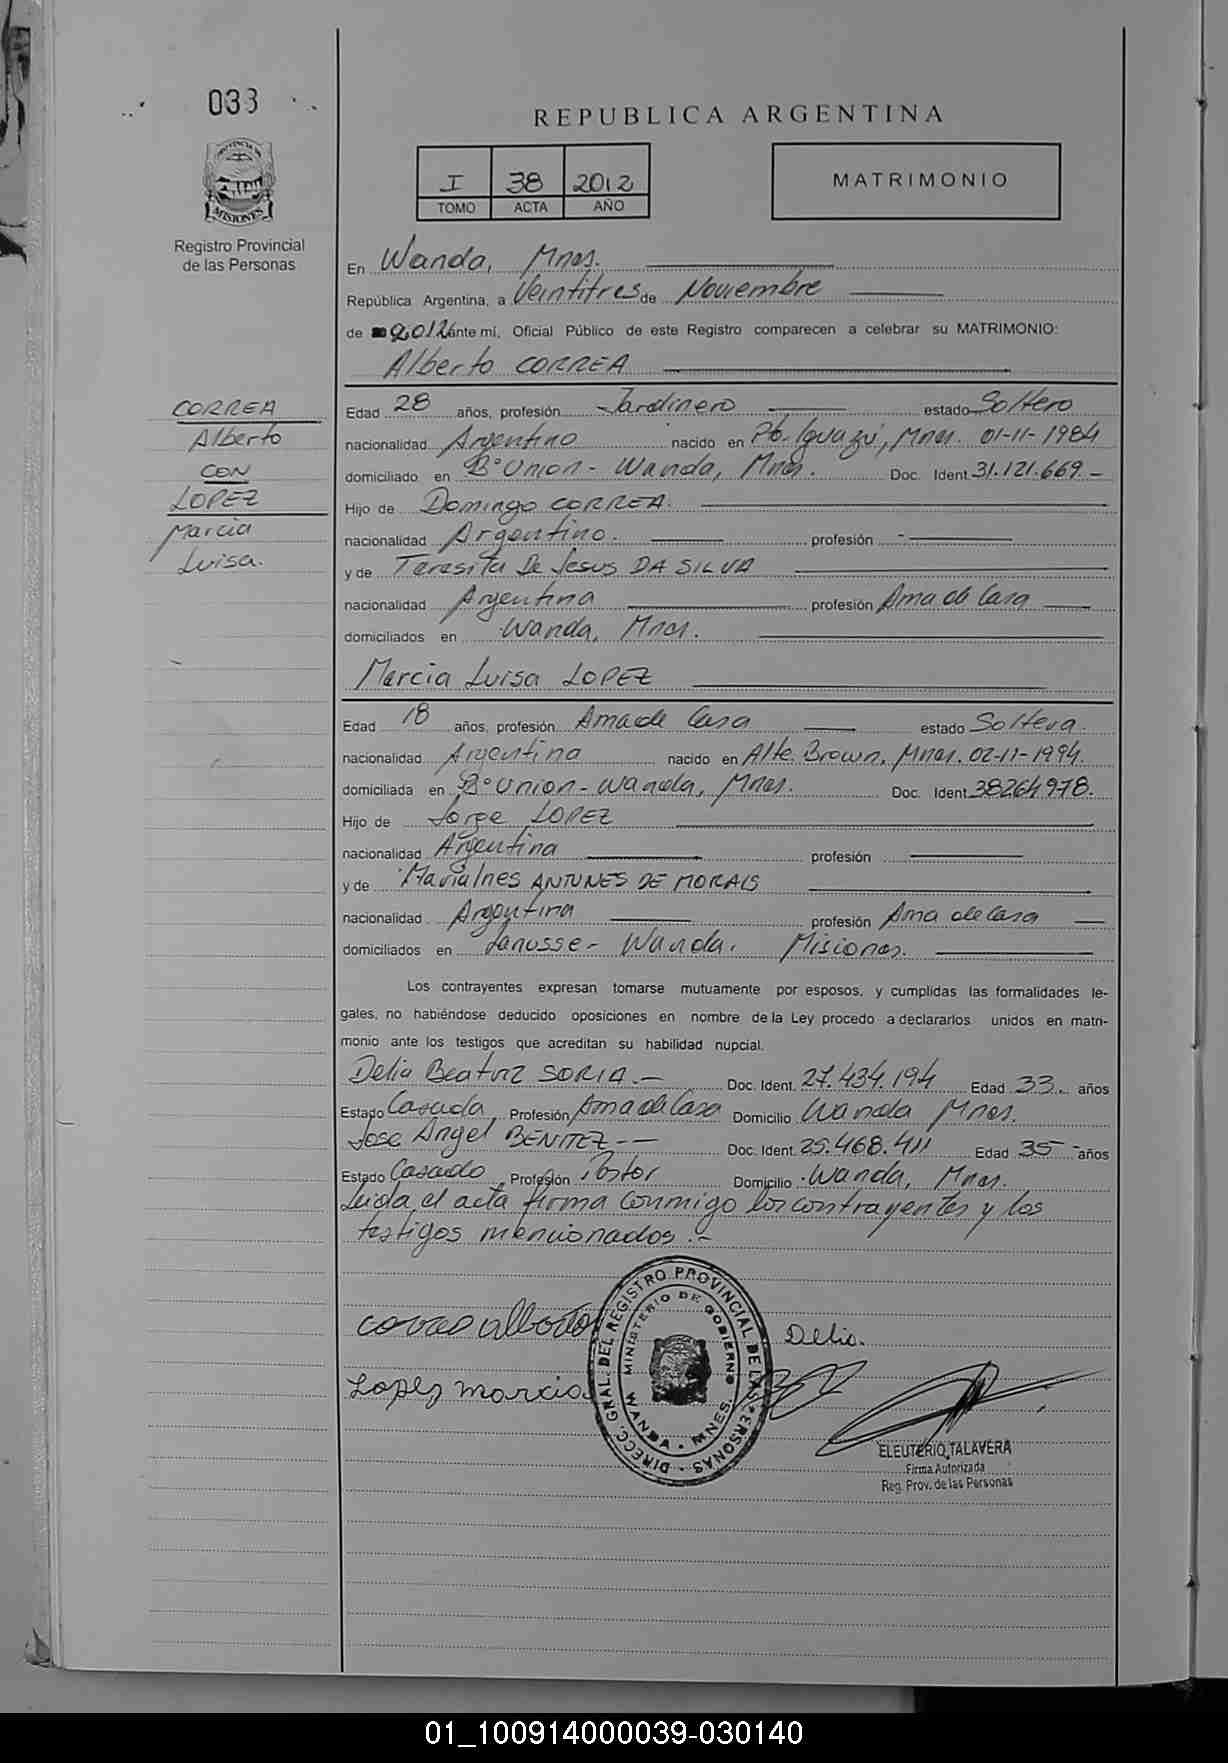 033
REPUBLICA ARGENTINA
I 38 2012
TOMO ACTA AÑO
MATRIMONIO
MISIONES
Registro Provincial
de las Personas
En Wanda, Mnes.
República Argentina, a Veintitres de Noviembre
de 2012 ante mí, Oficial Público de este Registro comparecen a celebrar su MATRIMONIO:
Alberto CORREA
CORREA
Alberto
CON
LOPEZ
Marcia
Luisa.
Edad 28 años, profesión Jardinero estado Soltero
nacionalidad Argentino nacido en Pto. Iguazú, Mnes. 01-11-1984
domiciliado en B° Union - Wanda, Mnes. Doc. Ident. 31.121.669.-
Hijo de Domingo CORREA.
nacionalidad Argentino. profesión -
y de Teresita De Jesus DA SILVA
nacionalidad Argentina profesión Ama de Casa
domiciliados en Wanda, Mnes.
Marcia Luisa LOPEZ
Edad 18 años, profesión Ama de Casa estado Soltera.
nacionalidad Argentina nacido en Alte. Brown, Mnes. 02-11-1994.
domiciliada en B° Union - Wanda, Mnes. Doc. Ident. 38264978.
Hijo de Jorge LOPEZ
nacionalidad Argentina profesión
y de Maria Ines ANTUNES DE MORAIS
nacionalidad Argentina profesión Ama de Casa
domiciliados en Lanusse - Wanda. Misiones.
Los contrayentes expresan tomarse mutuamente por esposos, y cumplidas las formalidades le-
gales, no habiéndose deducido oposiciones en nombre de la Ley procedo a declararlos unidos en matri-
monio ante los testigos que acreditan su habilidad nupcial.
Delia Beatriz SORIA.- Doc. Ident. 27.434.194 Edad 33 años
Estado Casada, Profesión Ama de Casa Domicilio Wanda Mnes.
Jose Angel BENITEZ-- Doc. Ident. 25.468.411 Edad 35 - años
Estado Casado, Profesión Pastor Domicilio Wanda, Mnes.
Leida el acta firma conmigo los contrayentes y los
testigos mencionados.-
correa alberto
Delia.
Lopez marcia
DIRECC. GRAL. DEL REGISTRO PROVINCIAL DE LAS PERSONAS
MINISTERIO DE GOBIERNO
WANDA - MNES.
ELEUTERIO TALAVERA
Firma Autorizada
Reg. Prov. de las Personas
01_100914000039-030140